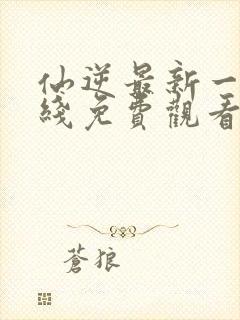 仙逆最新一
綫免費觀看
蒼狼